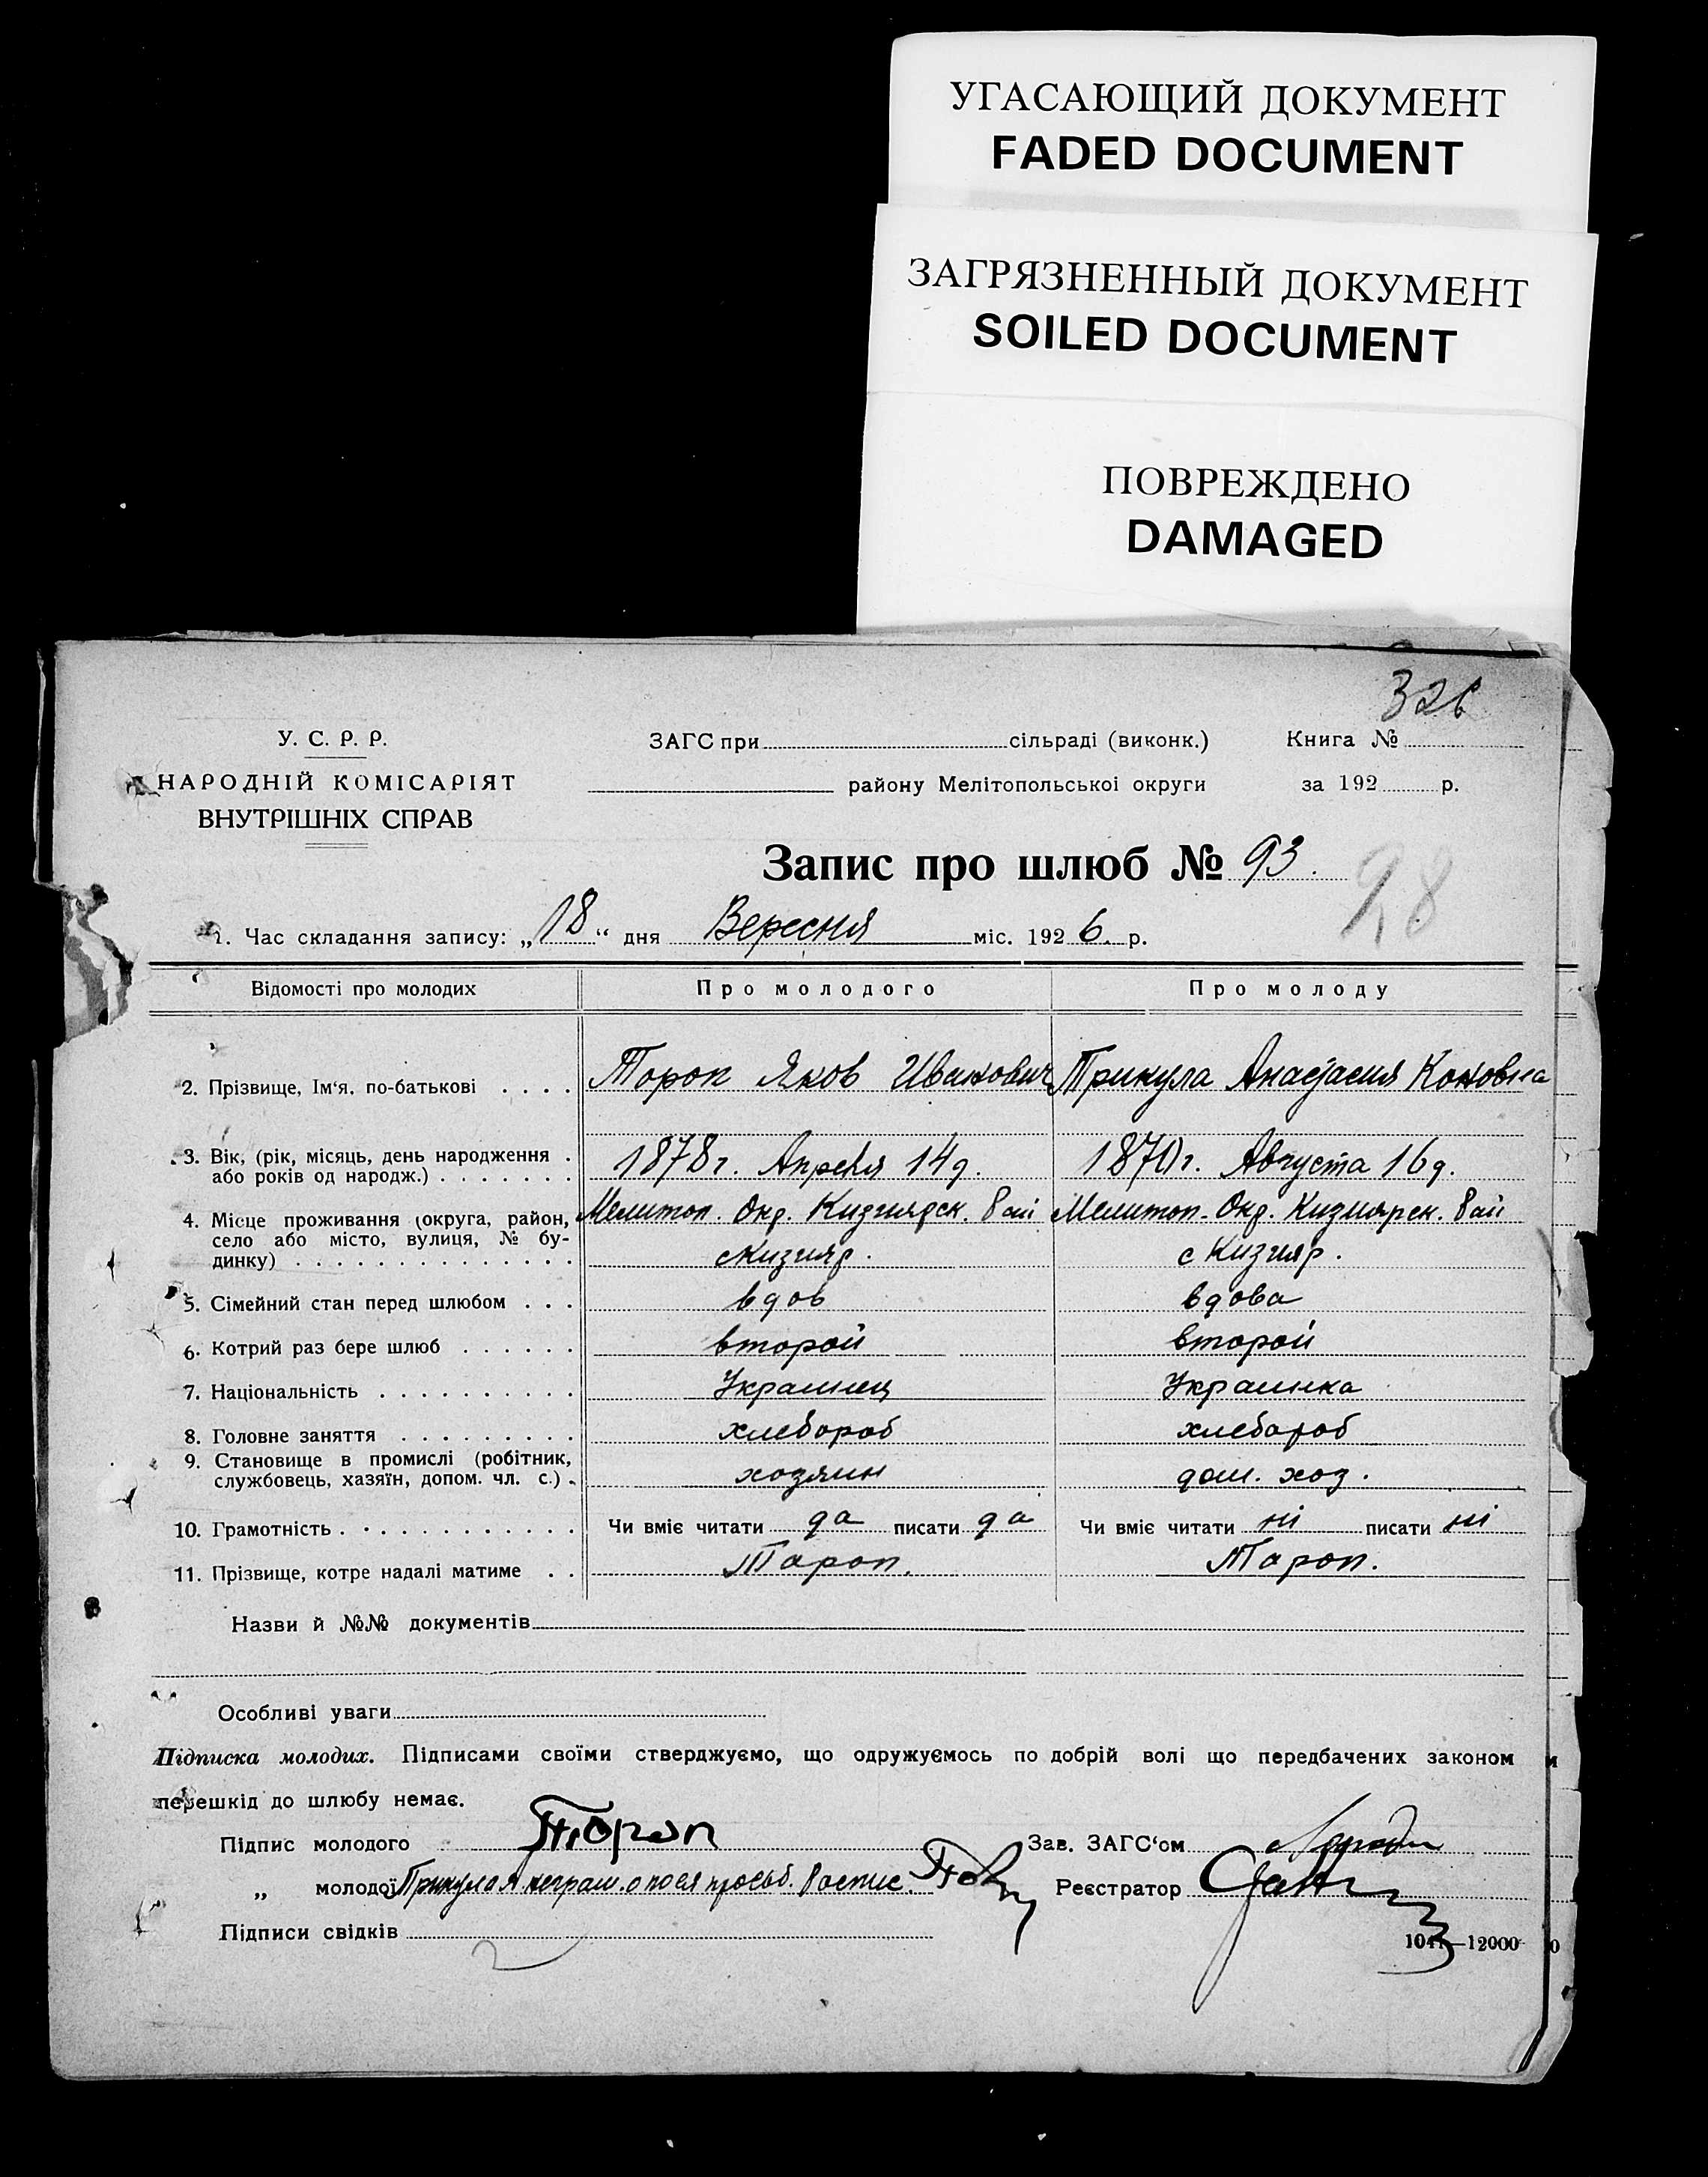 УГАСАЮЩИЙ ДОКУМЕНТ
FADED DOCUMENT
ЗАГРЯЗНЕННЫЙ ДОКУМЕНТ
SOILED DOCUMENT
ПОВРЕЖДЕНО
DAMAGED
326
У. С. Р. Р.
НАРОДНІЙ КОМІСАРІЯТ
ВНУТРІШНІХ СПРАВ
ЗАГС при сільраді (виконк.)
району Мелітопольськоі округи
Книга №
за 192 р.
Запис про шлюб № 93. 98
1. Час складання запису: „18“ дня Вересня міс. 1926. р.
Відомості про молодих Про молодого Про молоду
2. Прізвище, Ім‘я, по-батькові . . . . Тороп Яков Иванович Трикула Анастасия Кононовна
3. Вік, (рік, місяць, день народження . 1878 г. Апреля 14 д. 1870 г. Августа 16 д.
або років од народж.) . . . . . . .
4. Місце проживання (округа, район, Мелитоп. Окр. Кизиярск. Рай Мелитоп. Окр. Кизиярск. Рай
село або місто, вулиця, № бу- с Кизияр. с Кизияр.
динку) . . . . . . . . . . . . .
5. Сімейний стан перед шлюбом . . . вдов вдова
6. Котрий раз бере шлюб . . . . . . второй второй
7. Національність . . . . . . . . . . Украинец Украинка
8. Головне заняття . . . . . . . . . хлебороб хлебороб
9. Становище в промислі (робітник, хозяин дом. хоз.
службовець, хазяїн, допом. чл. с.) .
10. Грамотність . . . . . . . . . . . . Чи вміє читати да писати да Чи вміє читати ні писати ні
11. Прізвище, котре надалі матиме . . Тароп. Тароп.
Назви й №№ документів
Особливі уваги
Підписка молодих. Підписами своїми стверджуємо, що одружуємось по добрій волі що передбачених законом
перешкід до шлюбу немає.
Підпис молодого Тороп Зав. ЗАГС‘ом
„ молодої Трикула А неграм. о по ея просьб. Роспис. Реєстратор
Підписи свідків
—12000